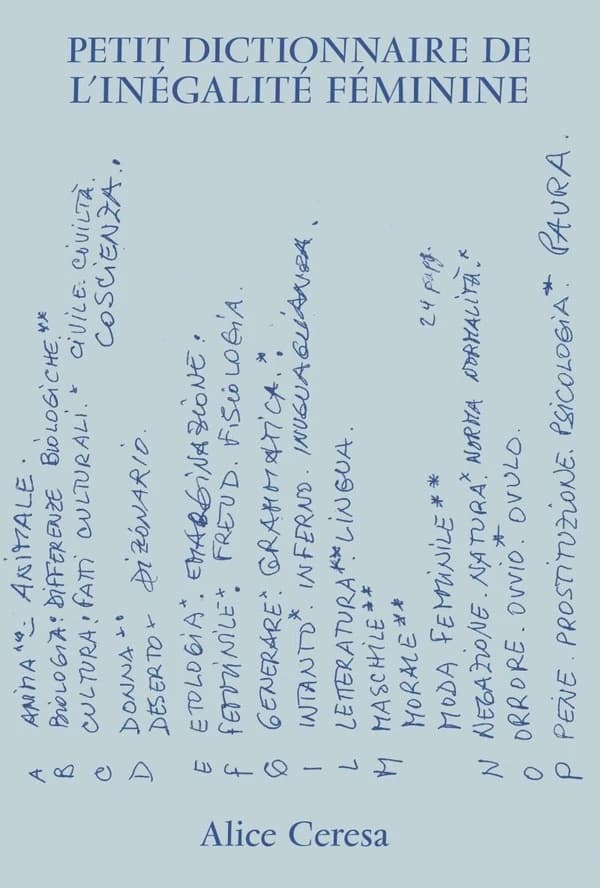 PETIT DICTIONNAIRE DE
L'INÉGALITÉ FÉMININE
A ANIMA** . ANIMALE.
B BIOLOGIA. DIFFERENZE BIOLOGICHE**
C CULTURA. FATTI CULTURALI.* CIVILE. CIVILTÀ.
COSCIENZA.
D DONNA**
DESERTO* DIZIONARIO.
E ETOLOGIA*. EMARGINAZIONE.
F FEMMINILE*. FREUD. FISIOLOGIA.
G GENERARE*. GRAMMATICA.*
I INTANTO*. INFERNO. INUGUAGLIANZA.
L LETTERATURA** LINGUA.
M MASCHILE**
MORALE**
MODA FEMMINILE** 24 pagg.
N NEGAZIONE. NATURA* NORMA NORMALITÀ.*
O ORRORE. OVVIO*. OVULO.
P PENE. PROSTITUZIONE. PSICOLOGIA* PAURA.
Alice Ceresa